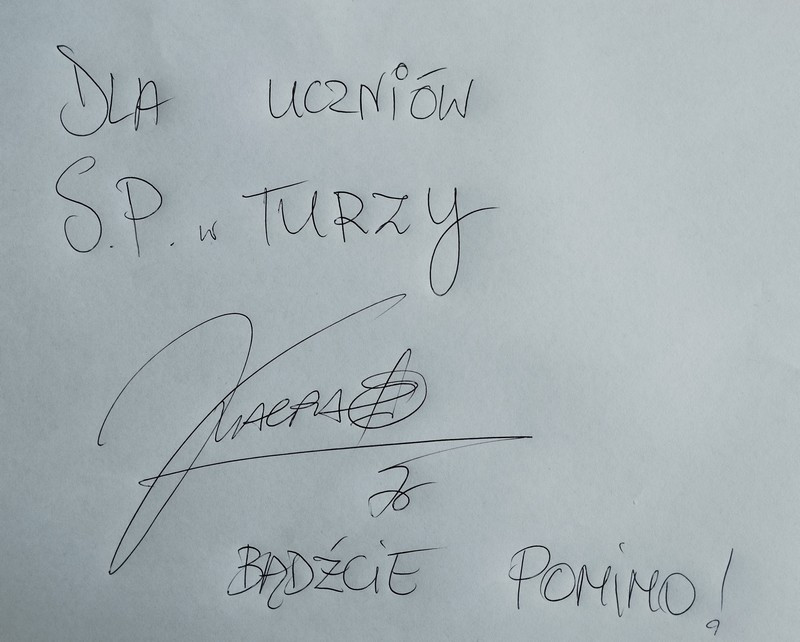 DLA UCZNIÓW
S.P. w TURZY
BĄDŹCIE POMIMO!